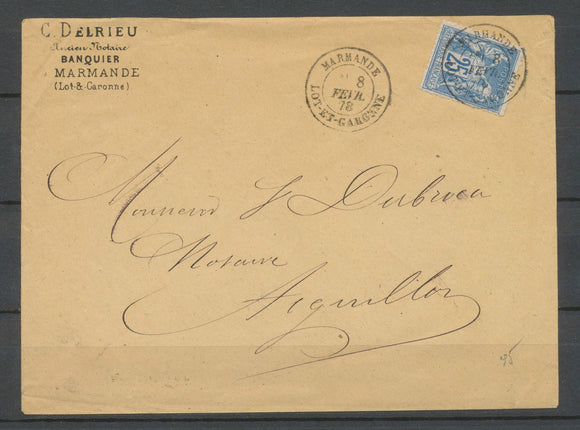 C. DELRIEU
Ancien Notaire
BANQUIER
MARMANDE
(Lot-&-Garonne)
MARMANDE
8
FEVR.
78
LOT-ET-GARONNE
MARMANDE
8
FEVR.
25
Monsieur Dubroca
Notaire
Aiguillon